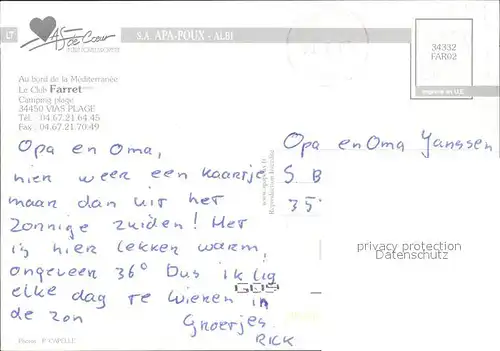 LT
As de Cœur
S.A. APA-POUX - ALBI
34332
FAR02
Imprimé en U.E.
Au bord de la Méditerranée
Le Club Farret
Camping plage
34450 VIAS PLAGE
Tél. 04.67.21.64.45
Fax : 04.67.21.70.49
Opa en Oma,
hier weer een kaartje
maar dan uit het
zonnige zuiden! Het
is hier lekker warm,
ongeveer 36° Dus ik lig
elke dag te wieren in
de zon
Groetjes
RICK
Opa en Oma Janssen
S B
35
privacy protection
Datenschutz
Reproduction interdite
Photos P. CAPELLE